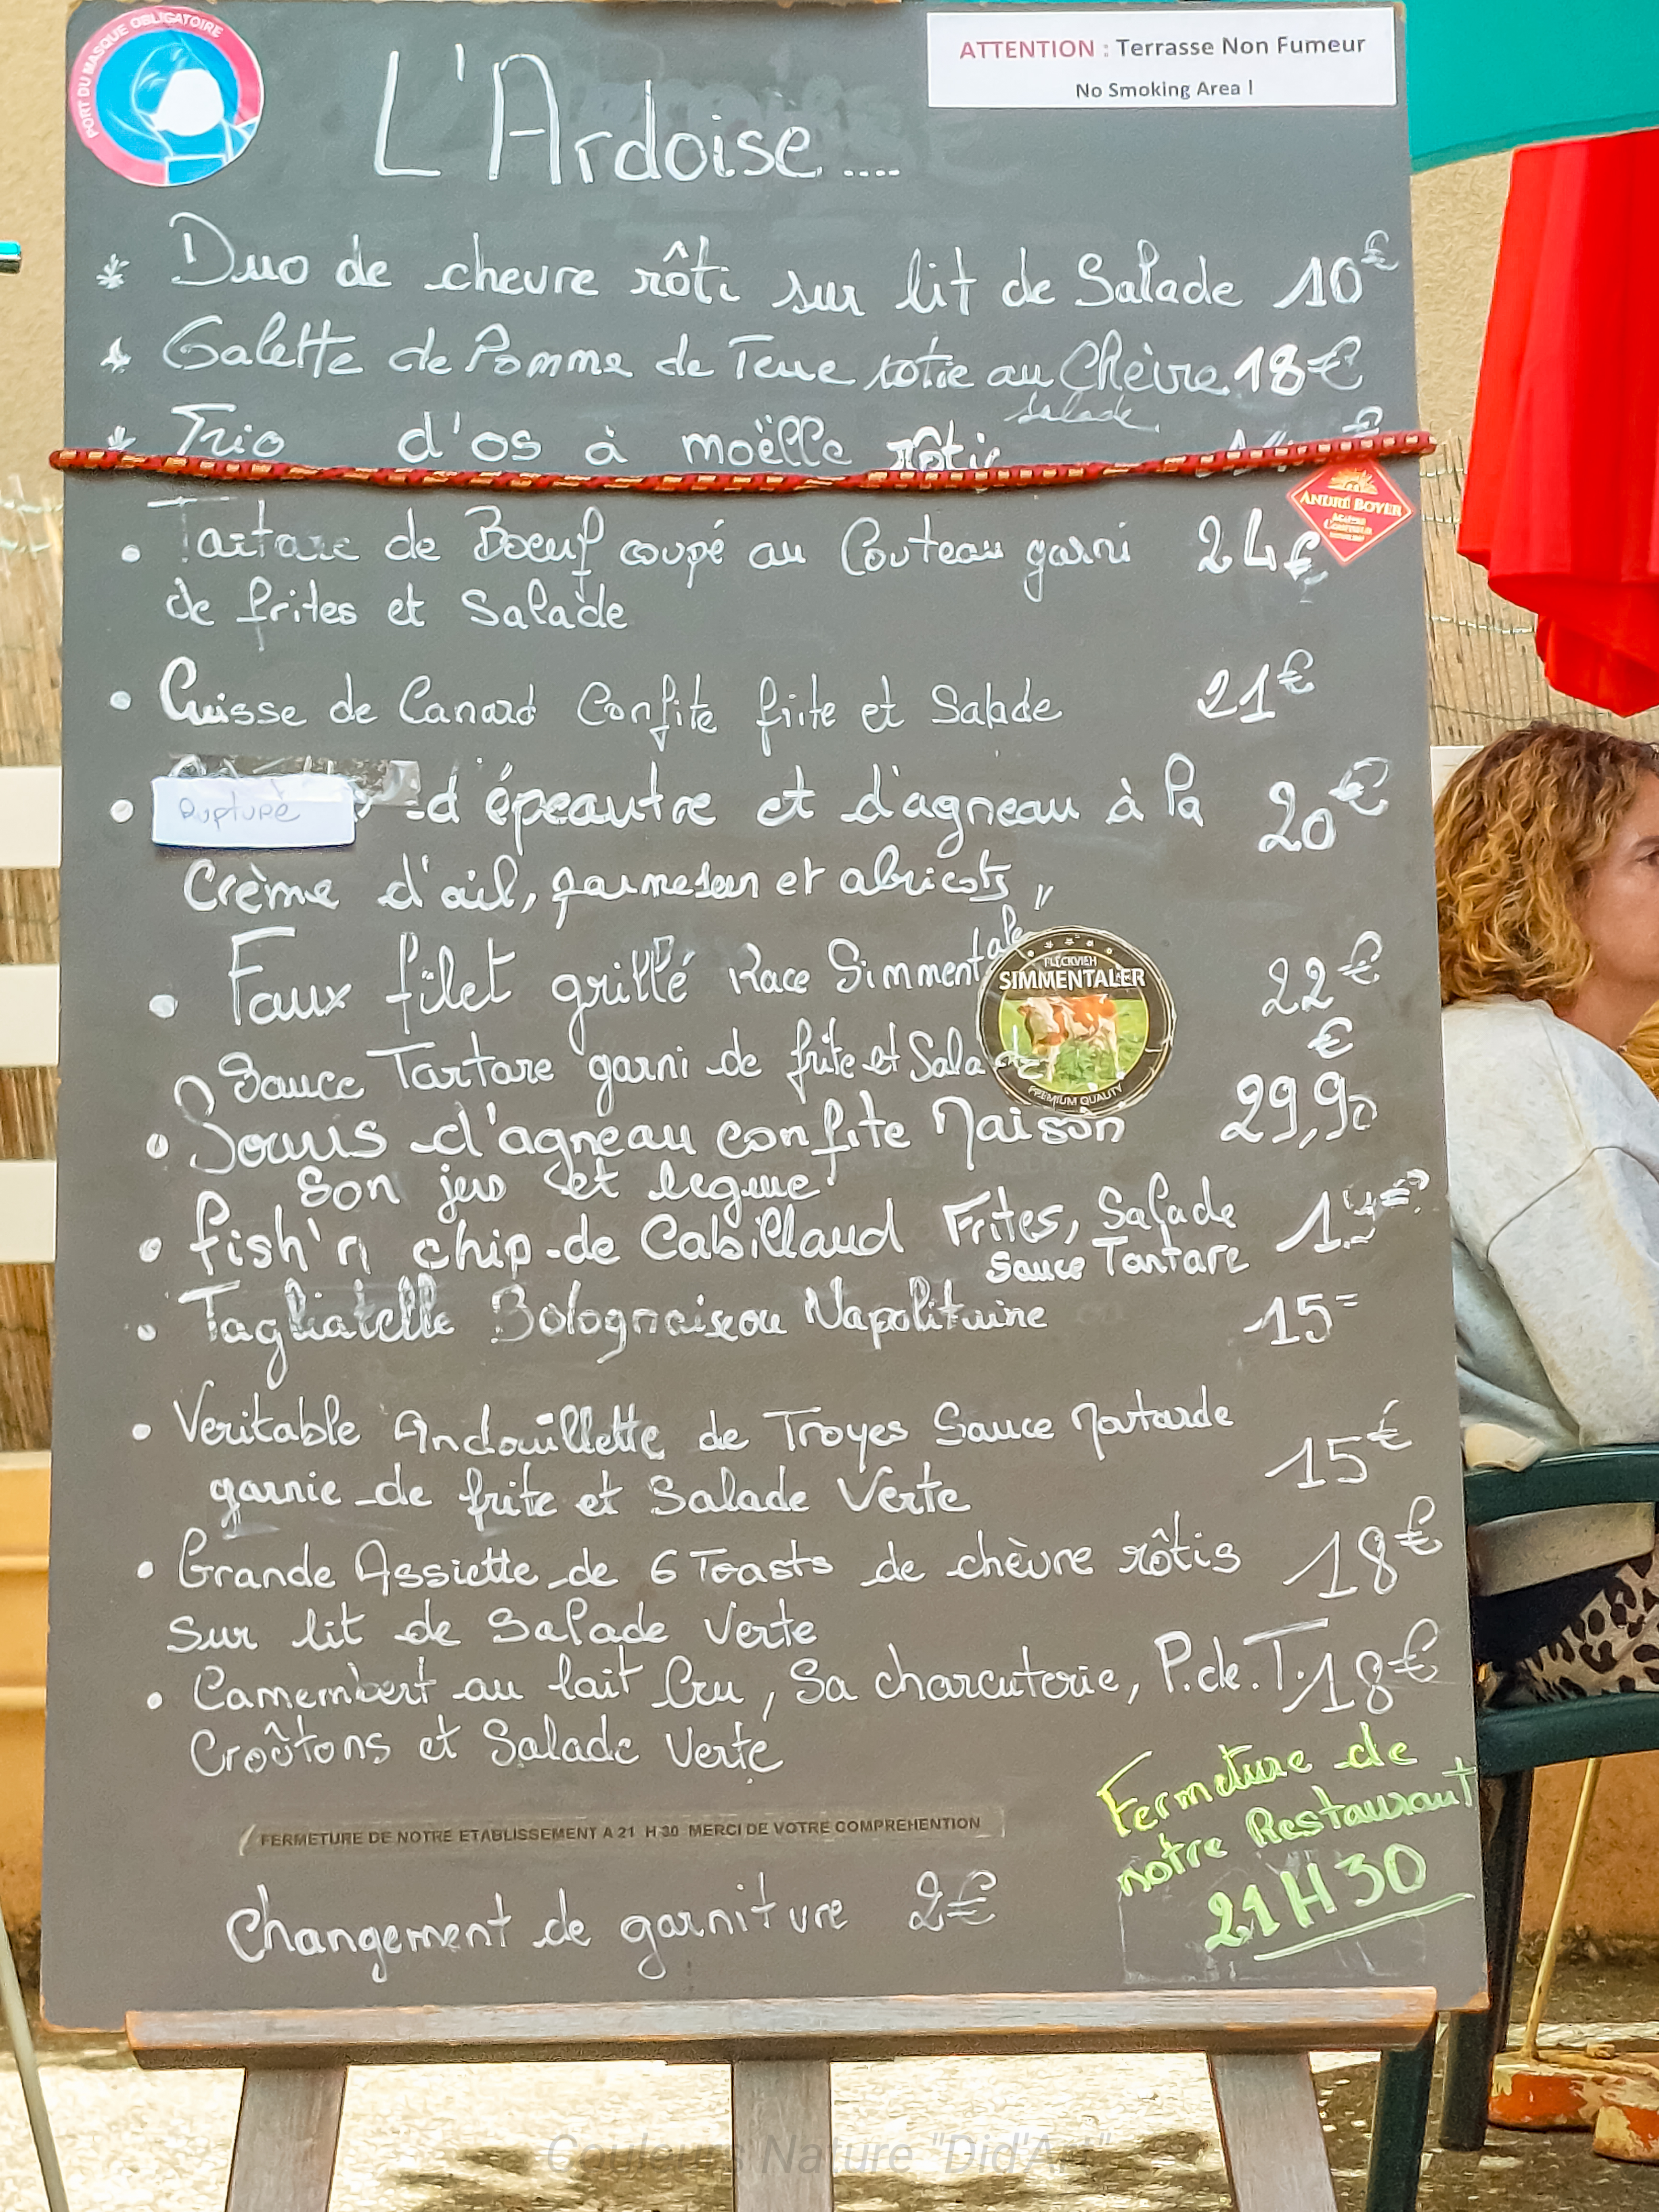 PORT DU MASQUE OBLIGATOIRE
ATTENTION : Terrasse Non Fumeur
No Smoking Area !
L'Ardoise....
* Duo de chevre rôti sur lit de Salade 10€
* Galette de Pomme de Terre rotie au Chèvre 18€
salade
* Trio d'os à moëlle rôtie
ANDRÉ BOYER
• Tartare de Boeuf coupé au Couteau garni 24€
de frites et Salade
• Cuisse de Canard Confite frite et Salade 21€
• Rupture d'épeautre et d'agneau à la 20€
Crème d'ail, parmesan et abricots
• Faux filet grillé Race Simmental 22€
FLECKVIEH
SIMMENTALER
PREMIUM QUALITY
Sauce Tartare garni de frite et Salade
• Souris d'agneau confite Maison 29,90 €
Son jus et legume
• fish'n chip de Cabillaud Frites, Salade
Sauce Tartare
• Tagliatelle Bolognaise ou Napolitaine 15=
• Veritable Andouillette de Troyes Sauce Moutarde
garnie de frite et Salade Verte 15€
• Grande Assiette de 6 Toasts de chèvre rôtis 18€
Sur lit de Salade Verte
• Camembert au lait Cru, Sa charcuterie, P.de.T. 18€
Croûtons et Salade Verte
FERMETURE DE NOTRE ETABLISSEMENT A 21 H 30 MERCI DE VOTRE COMPREHENTION
Fermeture de
notre Restaurant
21H30
Changement de garniture 2€
Couleurs Nature "Did'Art"